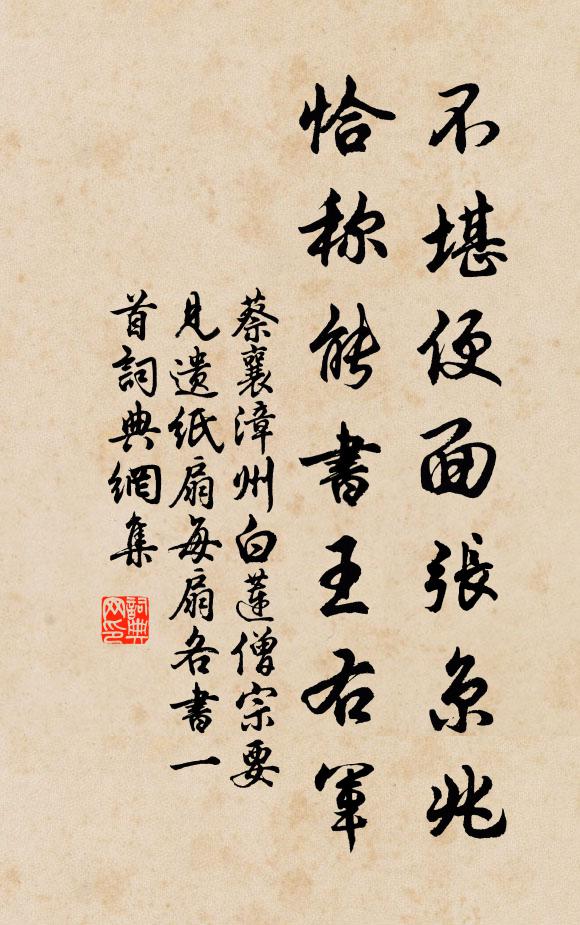 不堪便面張京兆
恰称能書王右軍
蔡襄漳州白蓮僧宗要
見遺紙扇每扇各書一
首詞典網集
詞典网印